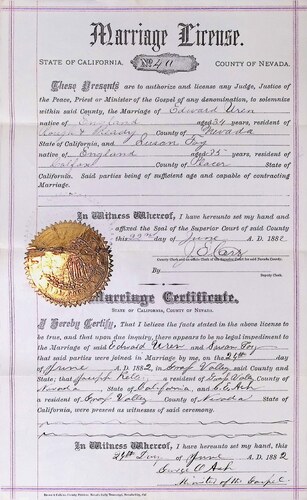 Marriage License.
STATE OF CALIFORNIA, No. 40 COUNTY OF NEVADA.
These Presents are to authorize and license any Judge, Justice of
the Peace, Priest or Minister of the Gospel of any denomination, to solemnize
within said County, the Marriage of Edward Uren
native of England aged 34 years, resident of
Rough & Ready County of Nevada
State of California, and Susan Foy
native of England aged 35 years, resident of
County of Placer State of
California. Said parties being of sufficient age and capable of contracting
Marriage.
In Witness Whereof, I have hereunto set my hand and
affixed the Seal of the Superior Court of said County
this 23rd day of June A.D. 1882
County Clerk and ex-officio Clerk of the Superior Court for said Nevada County.
By
Deputy Clerk.
Marriage Certificate.
STATE OF CALIFORNIA, COUNTY OF NEVADA.
I Hereby Certify, That I believe the facts stated in the above license to
be true, and that upon due inquiry, there appears to be no legal impediment to
the Marriage of said Edward Uren and Susan Foy
that said parties were joined in Marriage by me, on the 24th day
of June A.D. 1882, in Grass Valley said County and
State; that Joseph a resident of Grass Valley County of
Nevada State of California, and
a resident of Grass Valley County of Nevada State of
California, were present as witnesses of said ceremony.
In Witness Whereof, I have hereunto set my hand, this
24th Day June A.D. 1882
George
Minister of the Gospel